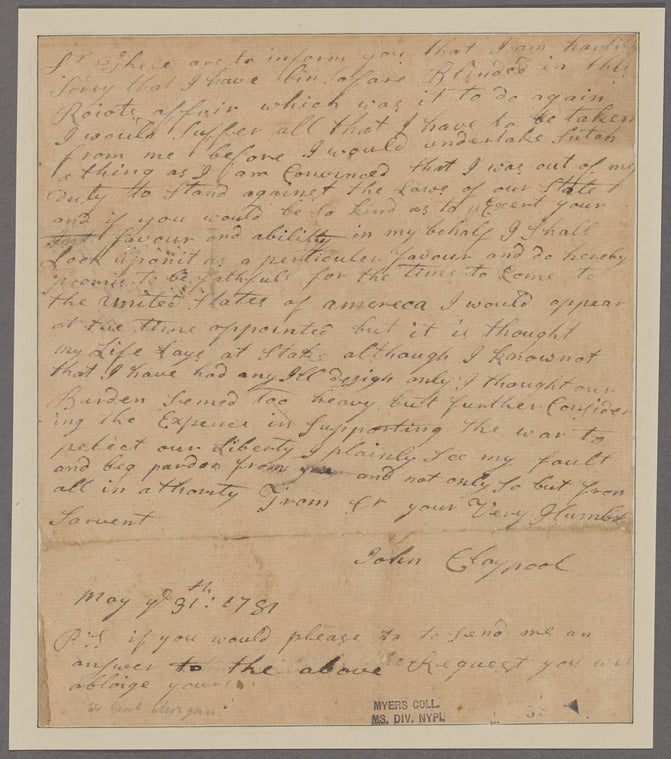 Sr These are to inform you that I am hartily
Sorry that I have bin so fare Blinded in this
Roiots affair which was it to do again
I would Suffer all that I have to be taken
from me before I would undertake Sutch
a thing as I am Convinced that I was out of my
duty to Stand against the Laws of our State
and if you would be so kind as to Exeert your
favour and ability in my behalf I Shall
Look upon it as a perticuler favour and do hereby
promis to be fathfull for the time to Come to
the United States of amereca I would appear
at the time appointed but it is thought
my Life Lays at Stake although I know not
that I have had any Ill design only I thought our
Burden Seemed Too heavy but further Consider
ing the Expence in Supporting the war to
petect our Liberty I plainly See my fault
and beg pardon from you and not only So but from
all in athority From Sr your Very Humble
Sarvent
John Claypool
May ye 31th: 1781
P.S if you would please to to Send me an
answer to the above Request you will
abloige yours
To Genl Morgan
MYERS COLL.
MS. DIV. NYPL